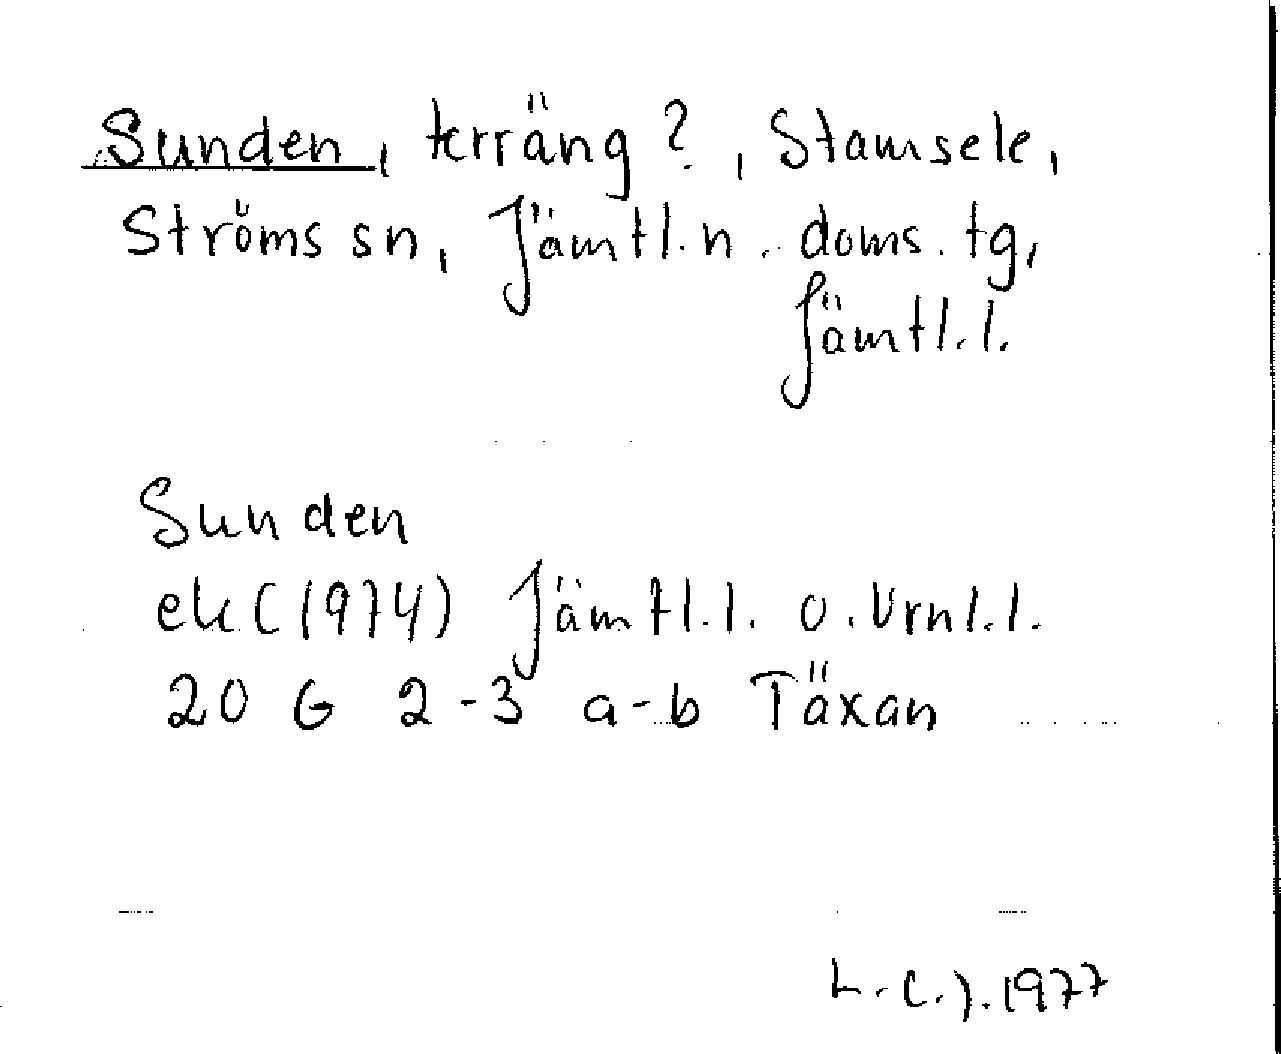 Sunden, terräng?, Stamsele,
Ströms sn, Jämtl.n. doms.tg,
Jämtl.l.
Sunden
ek (1974) Jämtl.l. o. Vrnl.l.
20 G 2-3 a-b Täxan
L.C.J. 1977